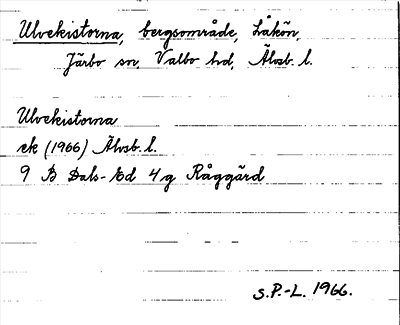 Ulvekistorna, bergsområde, Låkön,
Järbo sn, Valbo hd, Älvsb. l.
Ulvekistorna
ek (1966) Älvsb. l.
9 B Dals-Ed 4g Råggärd
S.P.-L. 1966.